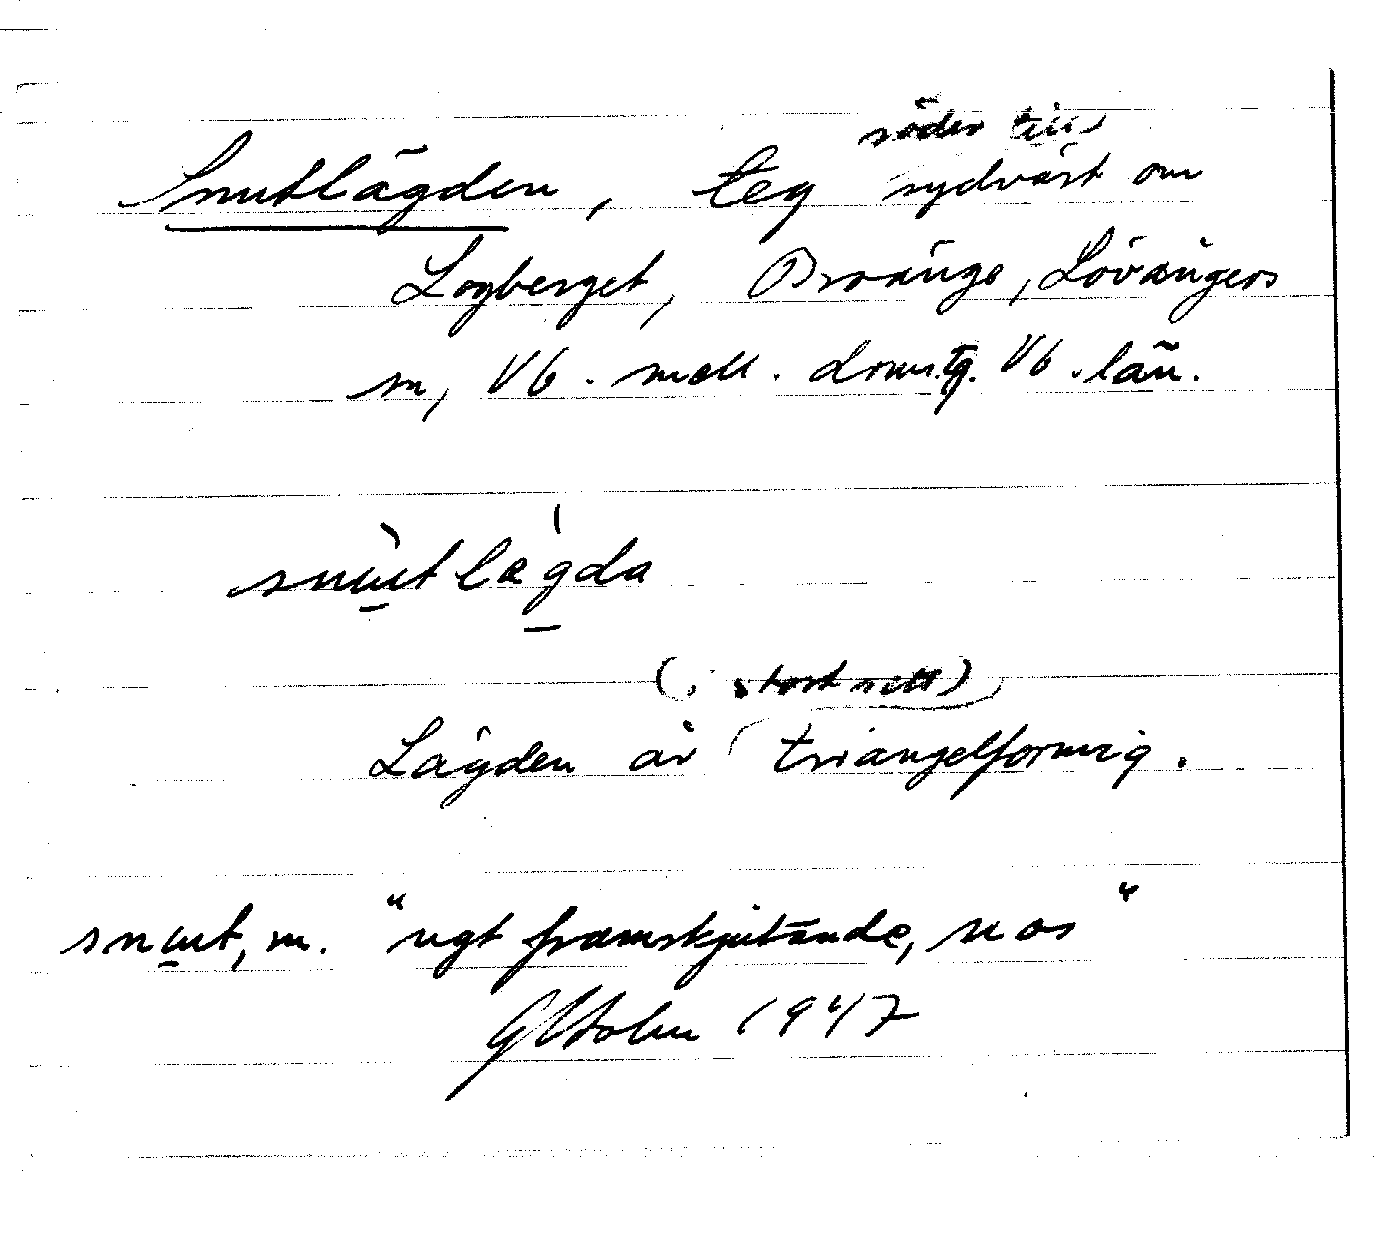 söder till
Snutlägden, teg sydväst om
Logberget, Broänge, Lövångers
sn, Vb. mell. domsg. Vb. län.
snɯtlægda
(, stort sett)
Lägden är triangelformig.
snɯt, m. "ngt framskjutande, nos"
Holm 1947